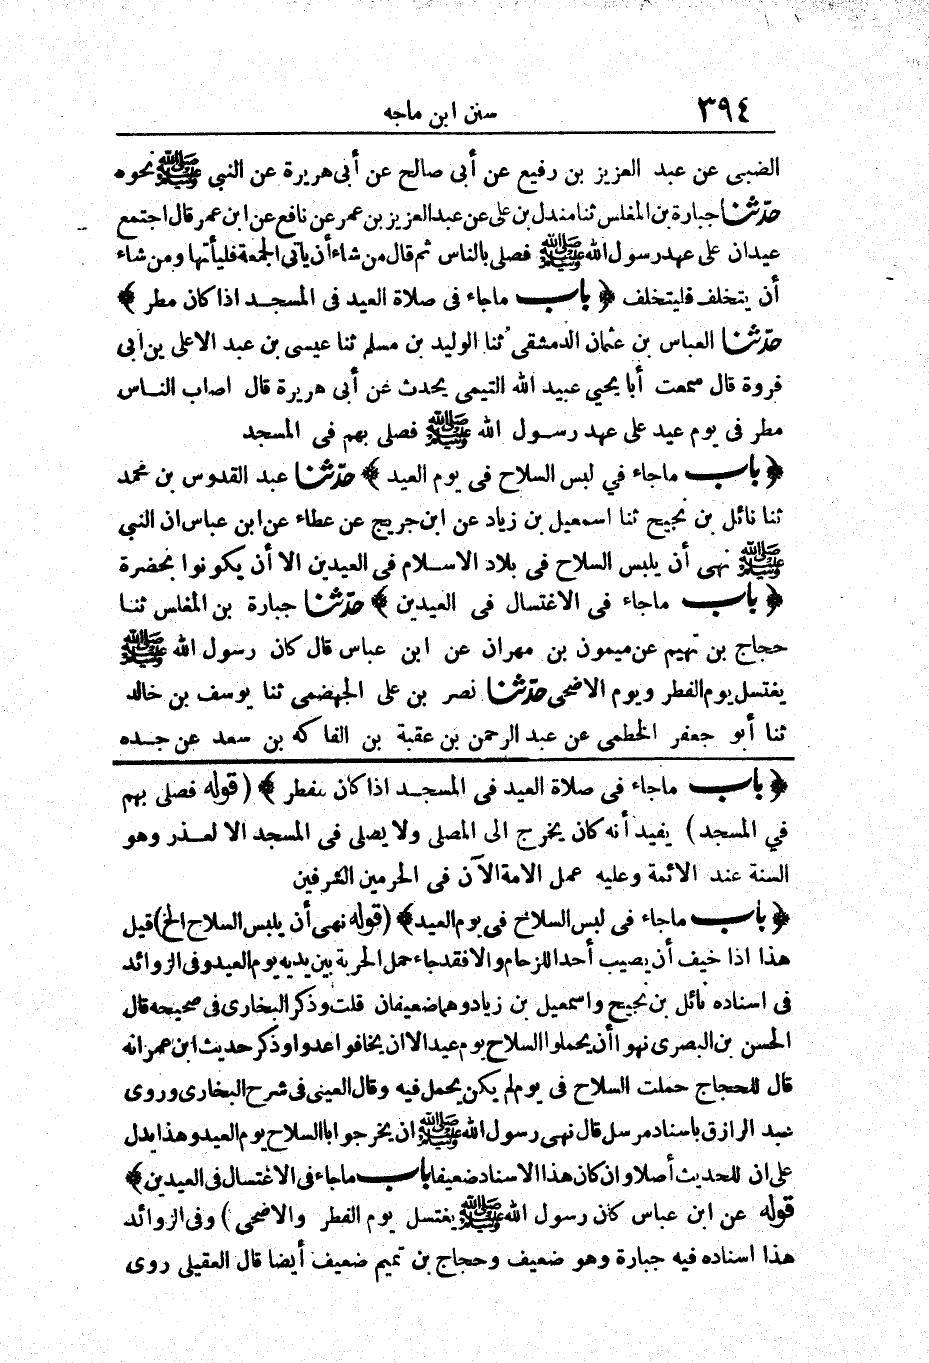 ٣٩٤
سنن ابن ماجه
الضبى عن عبد العزيز بن رفيع عن أبى صالح عن أبى هريرة عن النبى ﷺ نحوه
حدّثنا جبارة بن المغلس ثنا مندل بن على عن عبد العزيز بن عمر عن نافع عن ابن عمر قال اجتمع
عيدان على عهد رسول الله ﷺ فصلى بالناس ثم قال من شاء أن يأتى الجمعة فليأتها ومن شاء
أن يتخلف فليتخلف ﴿ باب ماجاء فى صلاة العيد فى المسجد اذا كان مطر ﴾
حدّثنا العباس بن عثمان الدمشقى ثنا الوليد بن مسلم ثنا عيسى بن عبد الاعلى بن ابى
فروة قال سمعت أبا يحيى عبيد الله التيمى يحدث عن أبى هريرة قال اصاب الناس
مطر فى يوم عيد على عهد رسول الله ﷺ فصلى بهم فى المسجد
﴿ باب ماجاء في لبس السلاح فى يوم العيد ﴾ حدّثنا عبد القدوس بن محمد
ثنا نائل بن نجيح ثنا اسمعيل بن زياد عن ابن جريج عن عطاء عن ابن عباس ان النبي
ﷺ نهى أن يلبس السلاح فى بلاد الاسلام فى العيدين الا أن يكونوا بحضرة
﴿ باب ماجاء فى الاغتسال فى العيدين ﴾ حدّثنا جبارة بن المغلس ثنا
حجاج بن تميم عن ميمون بن مهران عن ابن عباس قال كان رسول الله ﷺ
يغتسل يوم الفطر ويوم الاضحى حدّثنا نصر بن على الجهضمى ثنا يوسف بن خالد
ثنا أبو جعفر الخطمى عن عبد الرحمن بن عقبة بن الفاكه بن سعد عن جده
﴿ باب ماجاء فى صلاة العيد فى المسجد اذا كان مطر ﴾ ( قوله فصلى بهم
في المسجد ) يفيد أنه كان يخرج الى المصلى ولا يصلى فى المسجد الا لعذر وهو
السنة عند الائمة وعليه عمل الامة الآن فى الحرمين الشرفين
﴿ باب ماجاء فى لبس السلاح فى يوم العيد ﴾ (قوله نهى أن يلبس السلاح الخ) قيل
هذا اذا خيف أن يصيب أحدا للزحام والا فقد جاء حمل الحربة بين يديه يوم العيد وفى الزوائد
فى اسناده نائل بن نجيح واسمعيل بن زياد وهما ضعيفان قلت وذكر البخارى فى صحيحه قال
الحسن بن البصرى نهوا أن يحملوا السلاح يوم عيد الا ان يخافوا عدوا وذكر حديث ابن عمر انه
قال للحجاج حملت السلاح فى يوم لم يكن يحمل فيه وقال العينى فى شرح البخارى وروى
عبد الرازق باسناد مرسل قال نهى رسول الله ﷺ ان يخرجوا بالسلاح يوم العيد وهذا يدل
على ان للحديث أصلا وان كان هذا الاسناد ضعيفا باب ماجاء فى الاغتسال فى العيدين ﴾
قوله عن ابن عباس كان رسول الله ﷺ يغتسل يوم الفطر والاضحى ) وفى الزوائد
هذا اسناده فيه جبارة وهو ضعيف وحجاج بن تميم ضعيف أيضا قال العقيلى روى